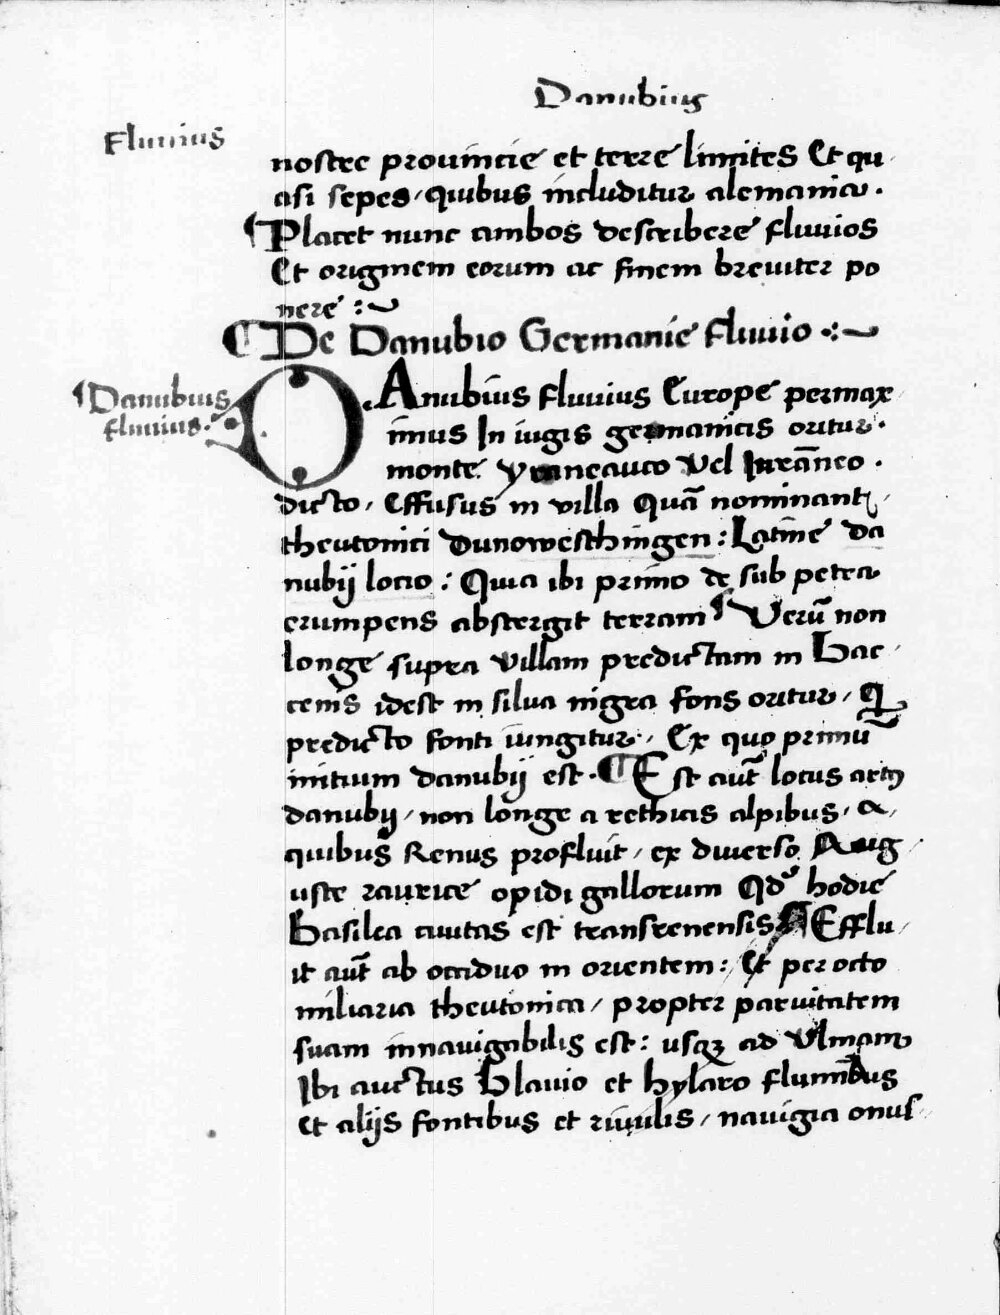 Danubius
Fluuius
nostre prouincie et terre limites Et qu
asi sepes, quibus includitur alemania.
¶Placet nunc ambos describere fluuios
Et originem eorum ac finem breuiter po
nere :~
¶De Danubio Germanie fluuio .:~
¶Danubius
fluuius.
DAnubius fluuius Europe permax
imus In iugis germanicis oritur.
monte vel
dicto, Effusus in villa Quā nominant
theutonici dunoweschingen: Latine da
nubij locio: Quia ibi primo de sub petra
erumpens abstergit terram ¶Verū non
longe supra villam predictam in bac,
cenis idest in silua nigra fons oritur, Q
predicto fonti iungitur, Ex quo primū
initium danubij est. ¶Est aut locus ortꝯ
danubij, non longe a rethicis alpibus, a,
quibus Renus profluit, ex diuerso Aug
uste raurice opidi gallorum Qd hodie
basilea ciuitas est transrenensis ¶Efflu,
it aut ab occiduo in orientem: Et per octo
miliaria theutonica, propter paruitatem
suam innauigabilis est: usqꝫ ad Vlmam
Ibi auctus blauio et hylaro fluminibus
Et alijs fontibus et riuulis, nauigia onus